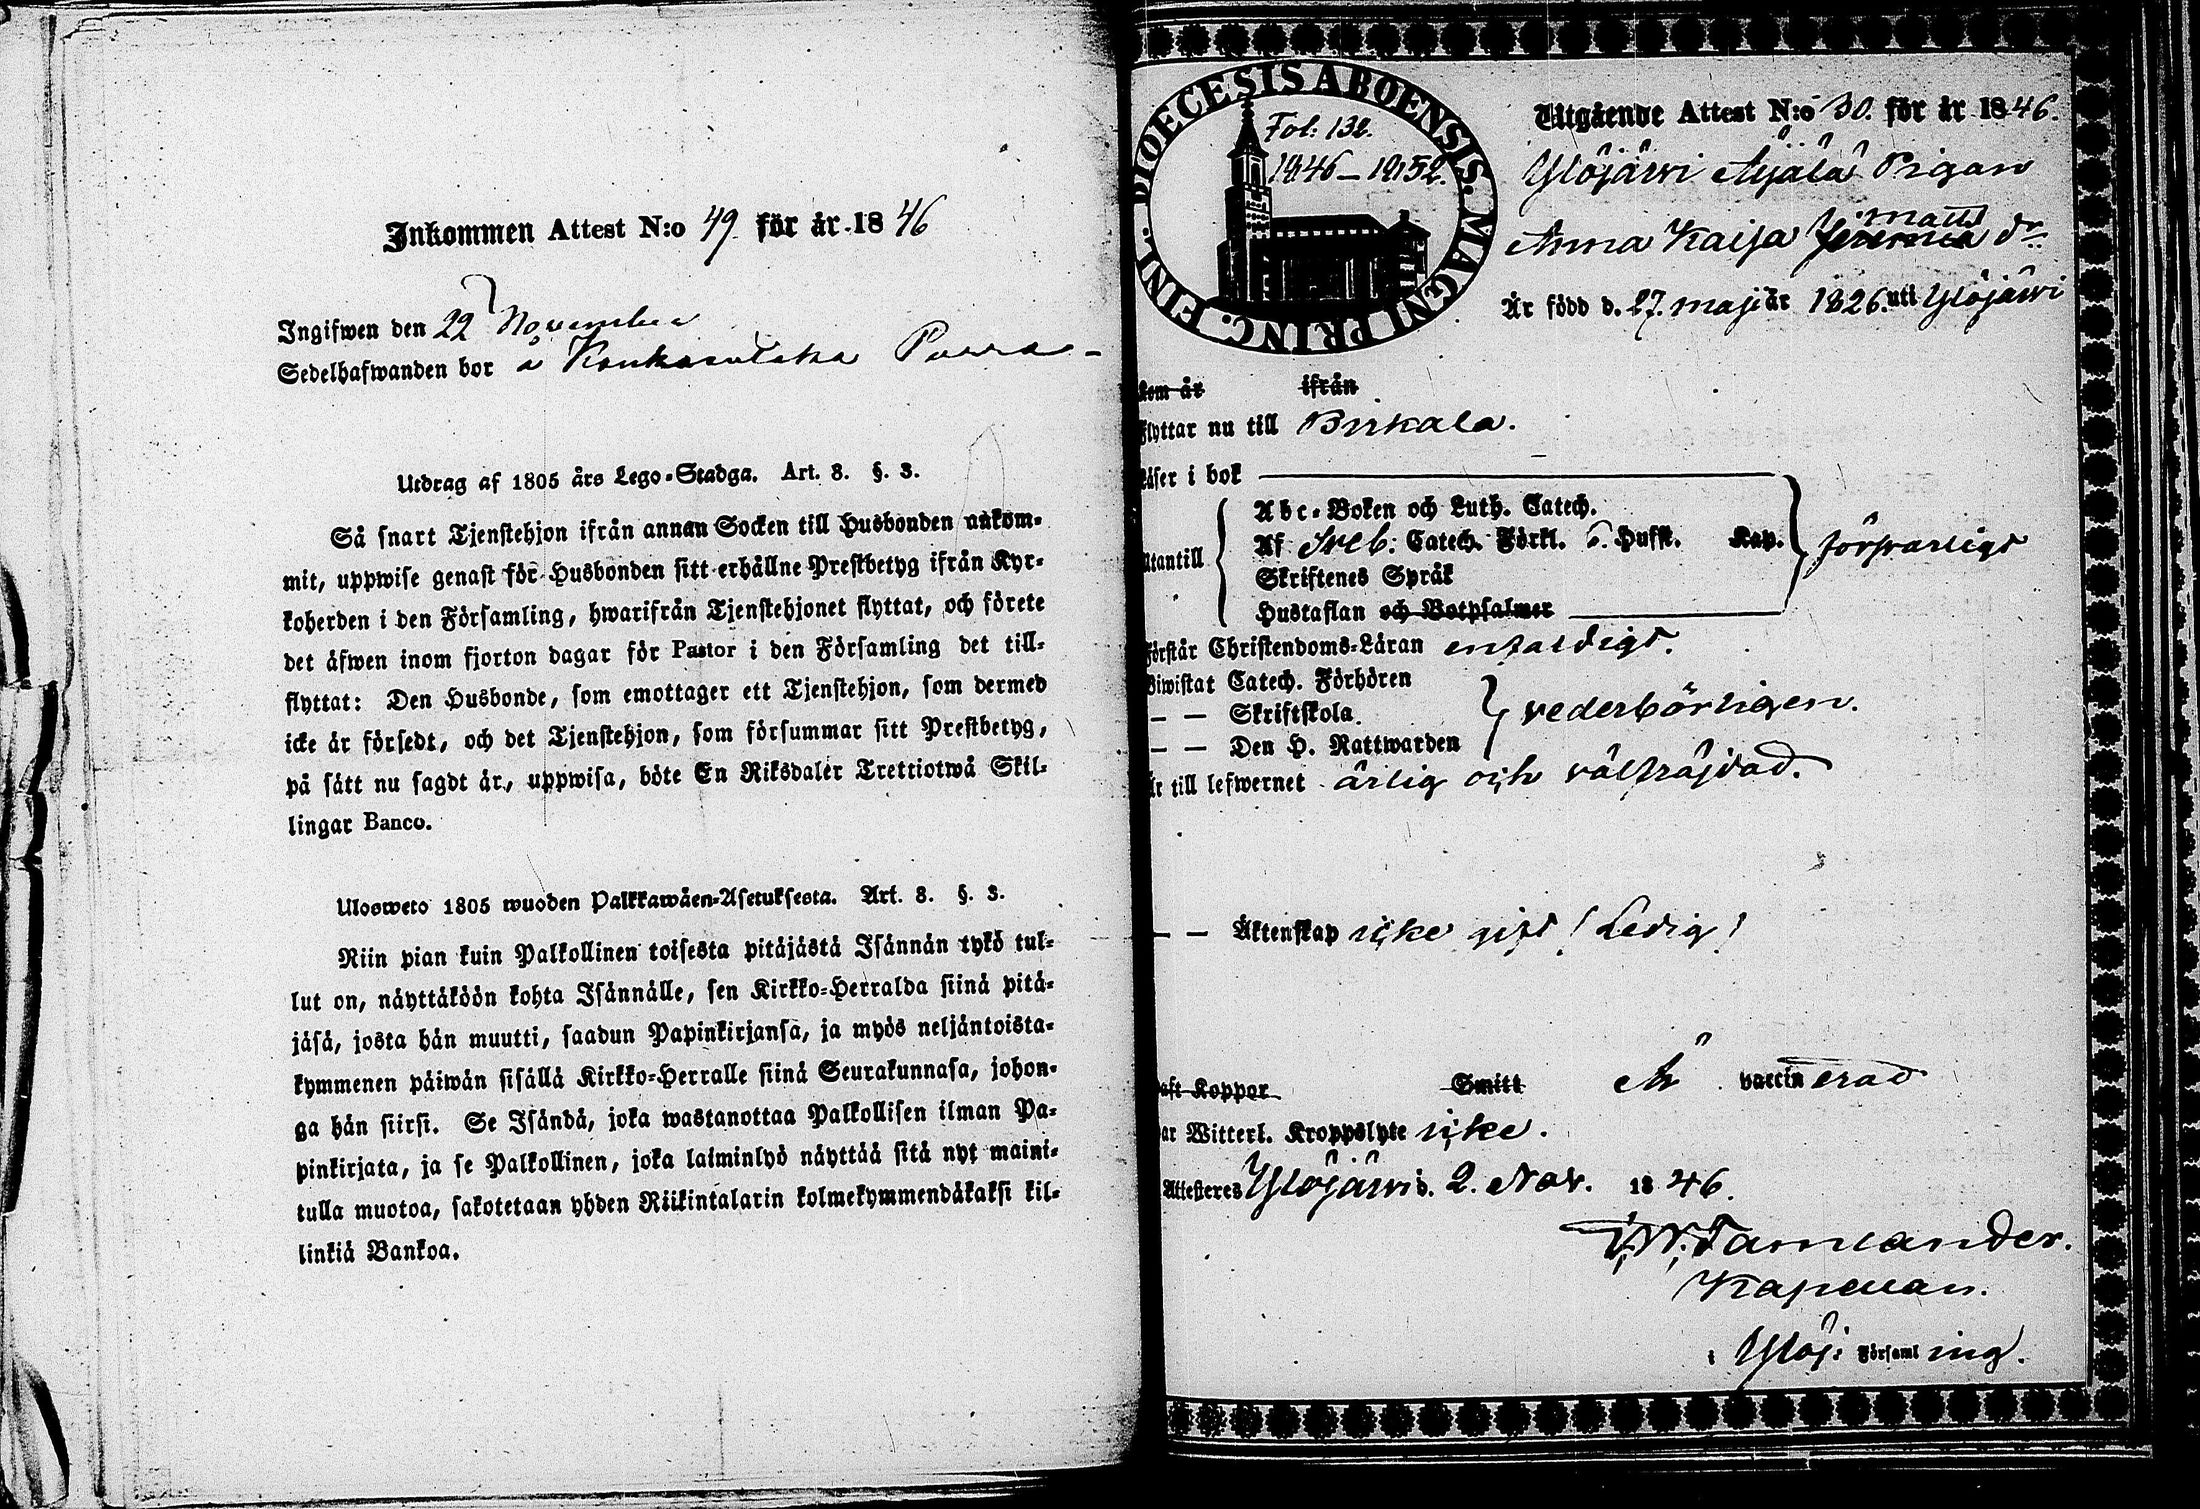 Inkommen Attest N:o 49 för år 1846
Ingifwen den 22 November
Sedelhafwanden bor å Porra
Utdrag af 1805 års Lego-Stadga. Art. 8. §. 3.
Så snart Tjenstehjon ifrån annan Socken till Husbonden ankom-
mit, uppwise genast för Husbonden sitt erhållne Prestbetyg ifrån Kyr-
koherden i den Församling, hwarifrån Tjenstehjonet flyttat, och förete
det äfwen inom fjorton dagar för Pastor i den Församling det till-
flyttat: Den Husbonde, som emottager ett Tjenstehjon, som dermed
icke är försedt, och det Tjenstehjon, som försummar sitt Prestbetyg,
på sätt nu sagdt är, uppwisa, böte En Riksdaler Trettiotwå Skil-
lingar Banco.
Ulosweto 1805 wuoden Palkkawäen-Asetuksesta. Art. 8. §. 3.
Niin pian kuin Palkollinen toisesta pitäjästä Isännän tykö tul-
lut on, näyttäköön kohta Isännälle, sen Kirkko-Herralda siinä pitä-
jäsä, josta hän muutti, saadun Papinkirjansa, ja myös neljäntoista-
kymmenen päiwän sisällä Kirkko-Herralle siinä Seurakunnasa, johon-
ga hän siirsi. Se Isändä, joka wastanottaa Palkollisen ilman Pa-
pinkirjata, ja se Palkollinen, joka laiminlyö näyttää sitä nyt maini-
tulla muotoa, sakotetaan yhden Riikintalarin kolmekymmendäkaksi kil-
linkiä Bankoa.
DIOECESIS ABOENSIS. MAGNI PRINC. FINL.
Fol: 132.
1846–1852.
Utgående Attest N:o 30. för år 1846.
Ylöjärvi Äijälä Pigan
Anna Kaisa Matts dr
Är född d. 27. maji år 1826. uti Ylöjärvi
kom år ifrån
Flyttar nu till Birkala.
Läser i bok
Abc-Boken och Luth. Catech.
Utantill Af Sveb: Catech. Förkl. o. Husst. Kap. försvarligt
Skriftenes Språk
Hustaflan och Botpsalmer
Förstår Christendoms-Läran enfaldigt.
Biwistat Catech. Förhören
— — Skriftskola. vederbörligen.
— — Den H. Nattwarden
Är till lefwernet ärlig och välfräjdad.
— — Äktenskap icke gift / Ledig /
haft Koppor Smitt Är vaccinerad
har Witterl. Kroppslyte icke.
Attesteres Ylöjärvi d. 2. Nov. 1846.
Tamlander.
Kapellan.
i Ylöj: Församling.